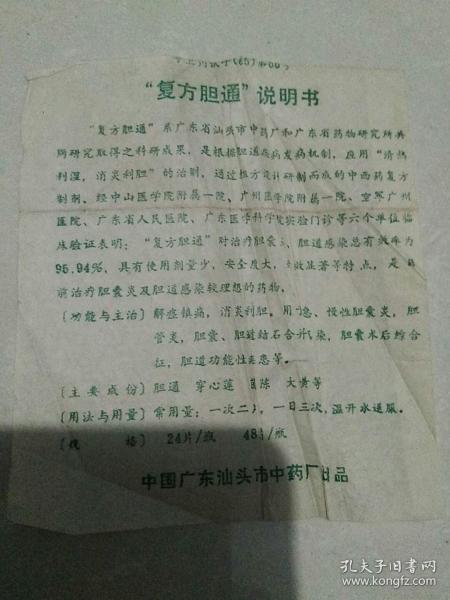 (85)第60号
“复方胆通”说明书
“复方胆通”系广东省汕头市中药厂和广东省药物研究所共
同研究取得之科研成果，是根据胆道疾病发病机制，应用“清热
利湿，消炎利胆”的治则，通过组方设计研制而成的中西药复方
制剂。经中山医学院附属一院、广州医学院附属一院、空军广州
医院、广东省人民医院、广东医学科学院实验门诊等六个单位临
床验证表明：“复方胆通”对治疗胆囊炎、胆道感染总有效率为
95.94%，具有使用剂量少，安全度大，疗效显著等特点，是目
前治疗胆囊炎及胆道感染较理想的药物。
〔功能与主治〕解痉镇痛，消炎利胆。用于急、慢性胆囊炎，胆
管炎，胆囊、胆道结石合并感染，胆囊术后综合
征，胆道功能性疾患等。
〔主要成份〕胆通 穿心莲 茵陈 大黄等
〔用法与用量〕常用量：一次二片，一日三次，温开水送服。
〔规 格〕24片/瓶 48片/瓶
中国广东汕头市中药厂出品
孔夫子旧书网
www.kongfz.com